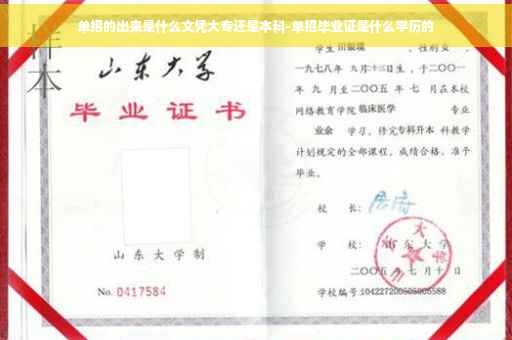 单招的出来是什么文凭大专还是本科-单招毕业证是什么学历的
样本
山东大学
毕业证书
山东大学制
No. 0417584
学生 田银瑞 ，性别 ，
一九七八年 九月十三日生，于二〇〇一
年 九 月至二〇〇五 年 七 月在本校
网络教育学院 临床医学 专业
业余 学习，修完 专科升本 科教学
计划规定的全部课程，成绩合格，准予
毕业。
校 长：
学 校： 山东大学
二〇〇五 年 七 月 十 日
学校编号：104227200505005588